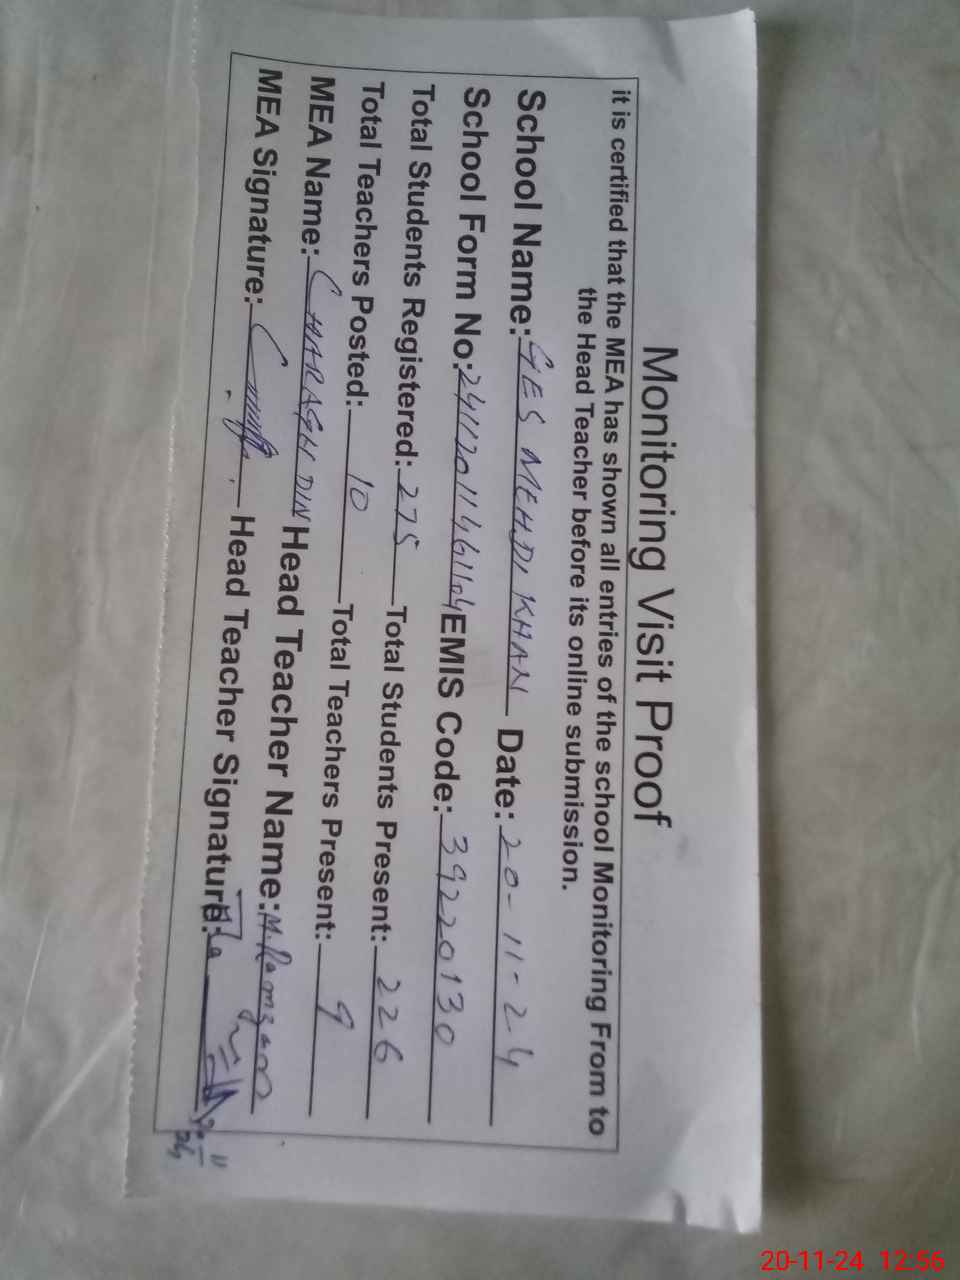 Monitoring Visit Proof
it is certified that the MEA has shown all entries of the school Monitoring From to
the Head Teacher before its online submission.
School Name: GES MEHDI KHAN Date: 20-11-24
School Form No: EMIS Code: 39220130
Total Students Registered: 275 Total Students Present: 226
Total Teachers Posted: 10 Total Teachers Present: 9
MEA Name: CHARAGH DIN Head Teacher Name: M. Ramzan
MEA Signature: Head Teacher Signature:
20-11-24 12:56